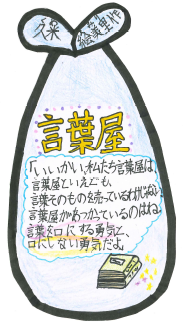 久米
絵美里作
言葉屋
「いいかい、私たち言葉屋は、
言葉屋といえども、
言葉そのものを売っているわけじゃない。
言葉屋があつかっているのはね、
言葉を口にする勇気と、
口にしない勇気だよ。